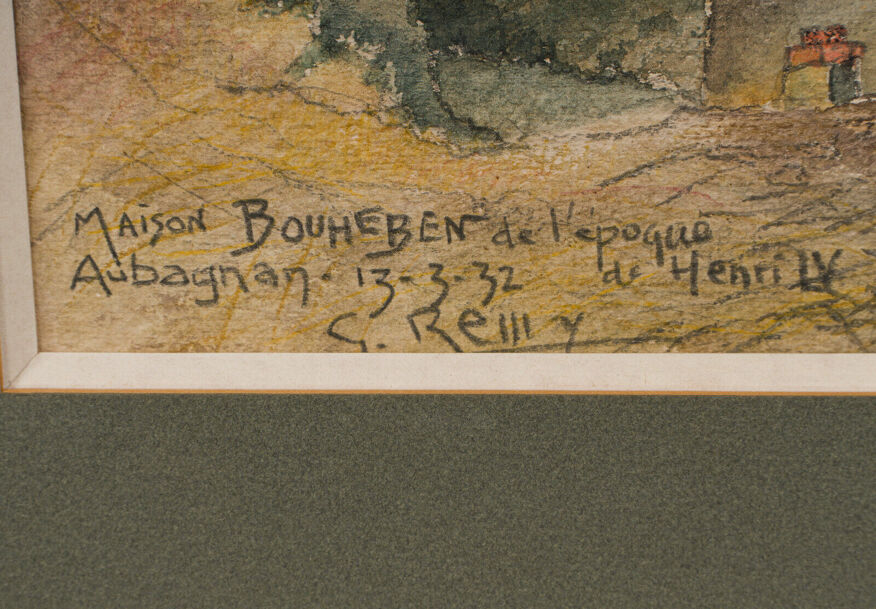 MAISON BOUHEBEN de l'époque
Aubagnan. 13-3-32 de Henri IV
G. Reilly